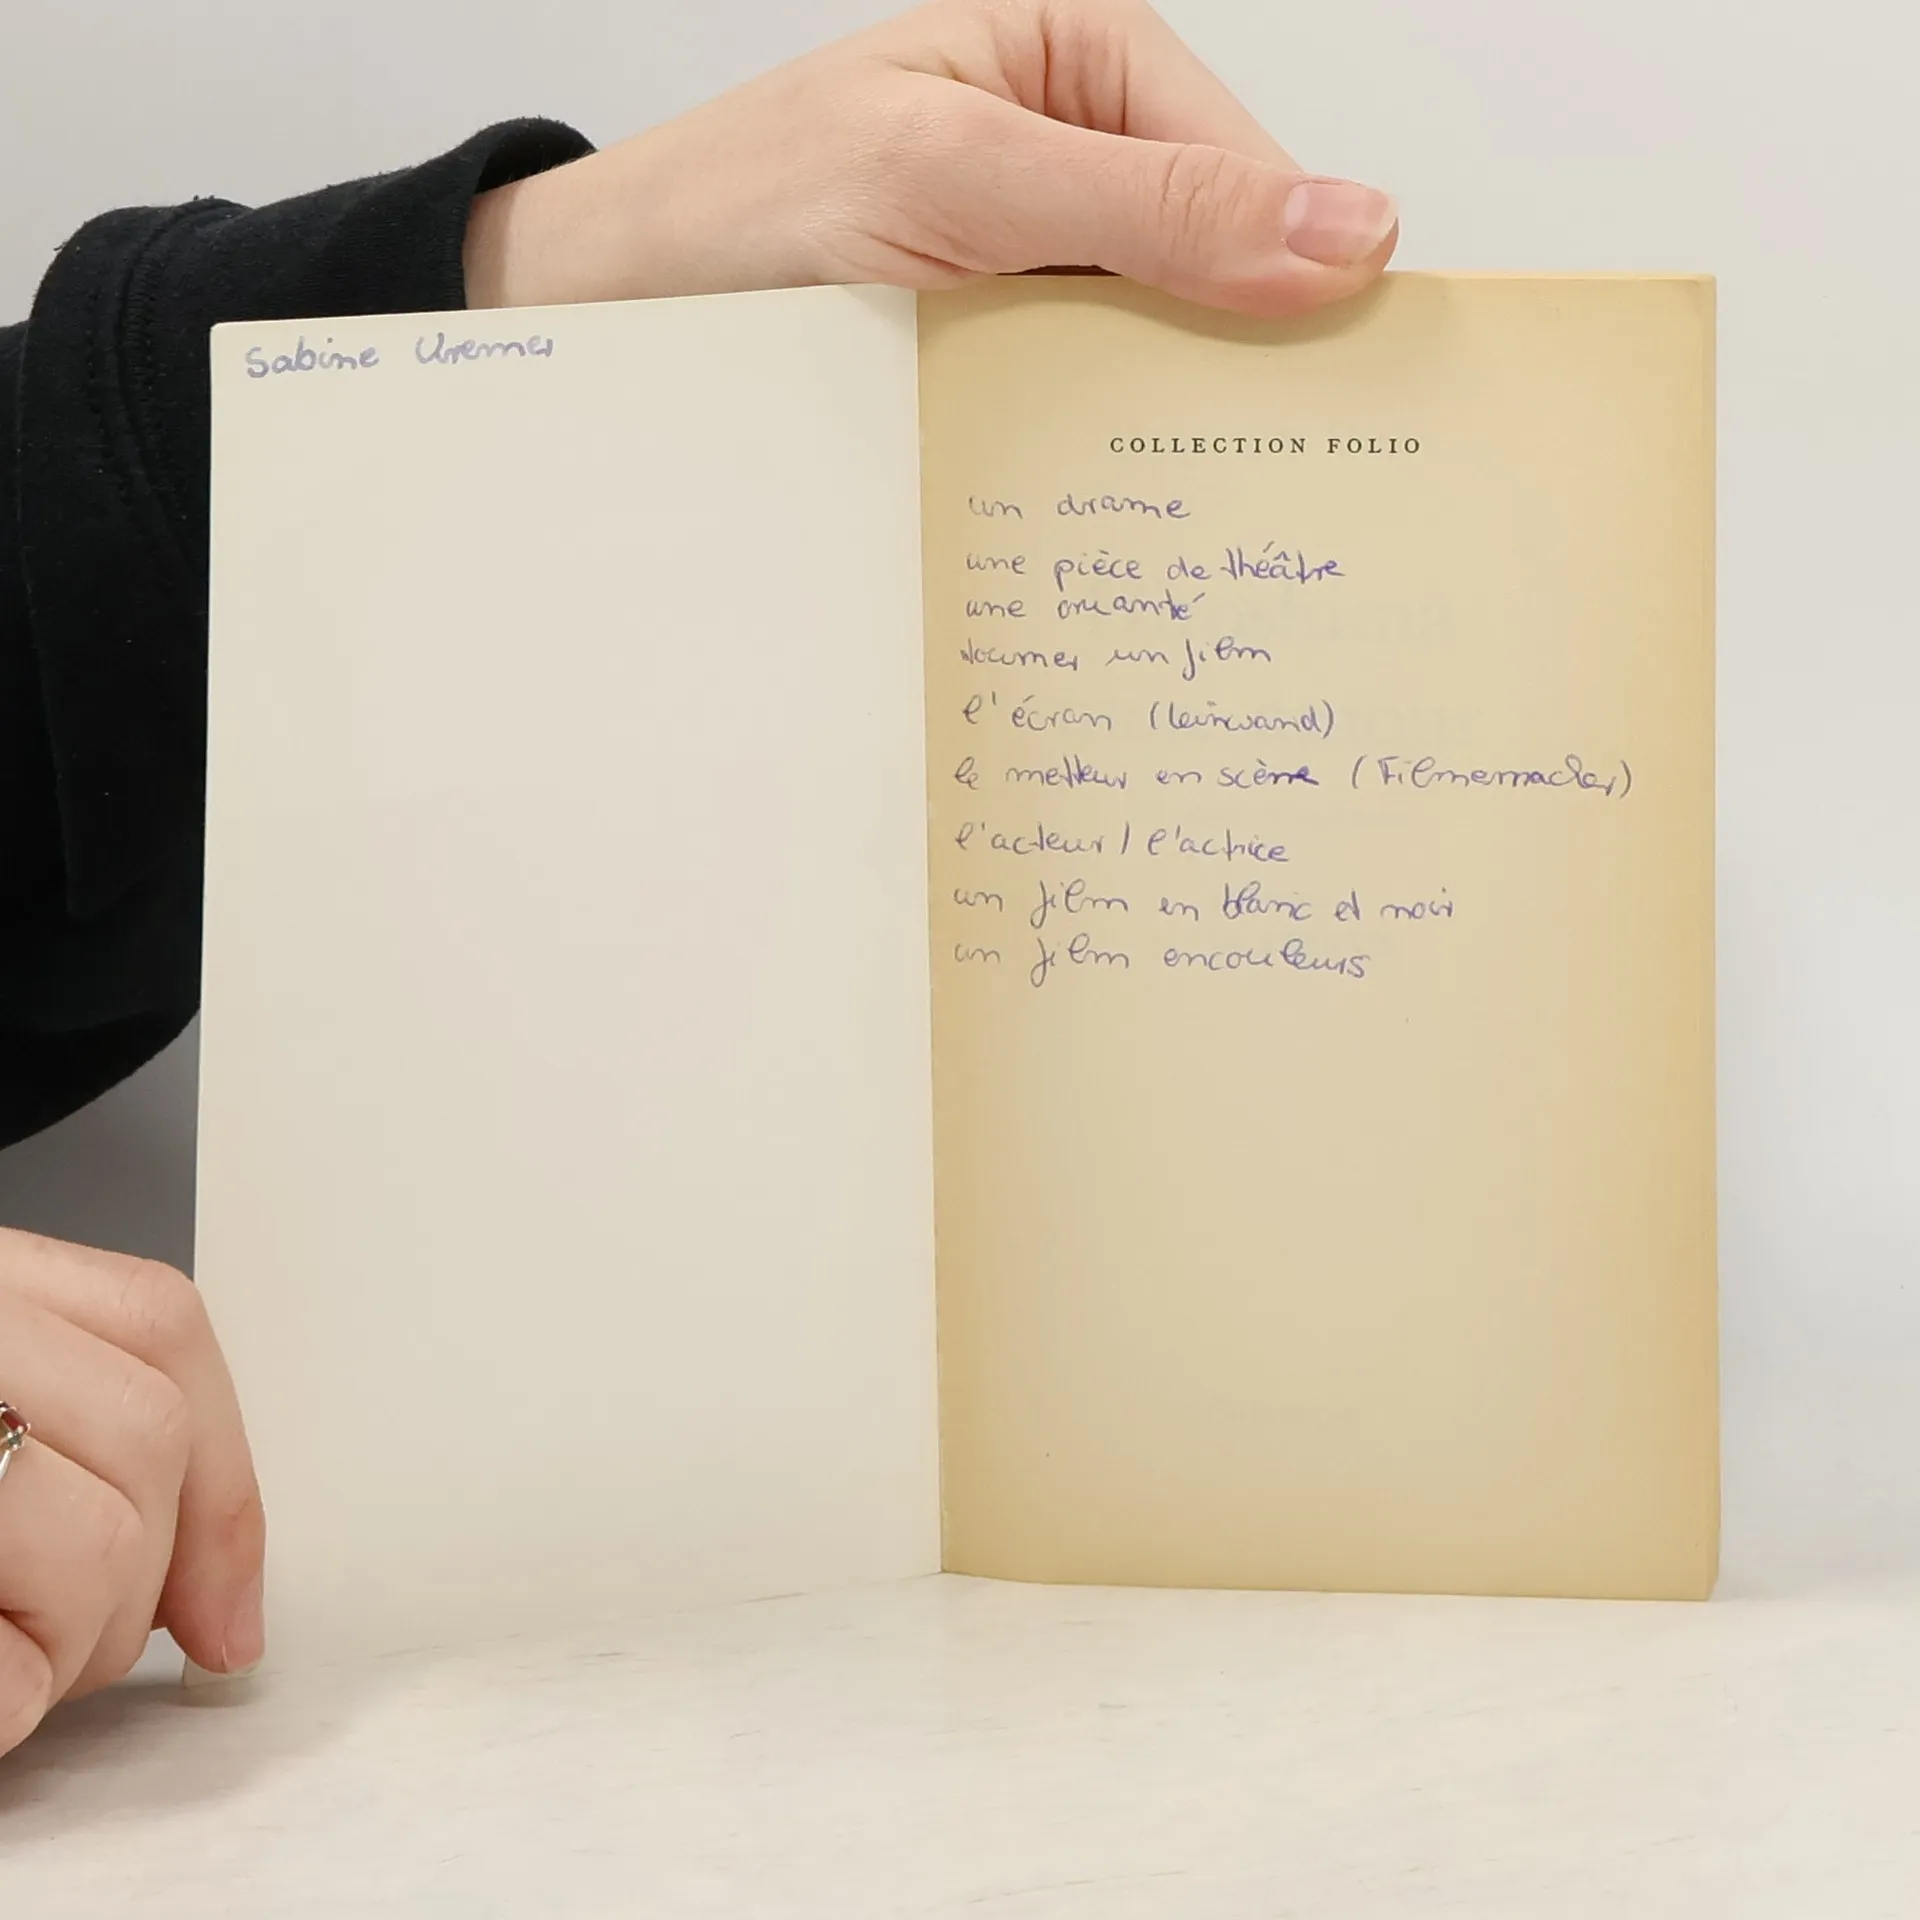 Sabine
COLLECTION FOLIO
un drame
une pièce de théâtre
une
tourner un film
l'écran (leinwand)
le metteur en scène (Filmemacher)
l'acteur / l'actrice
un film en blanc et noir
un film encouleurs